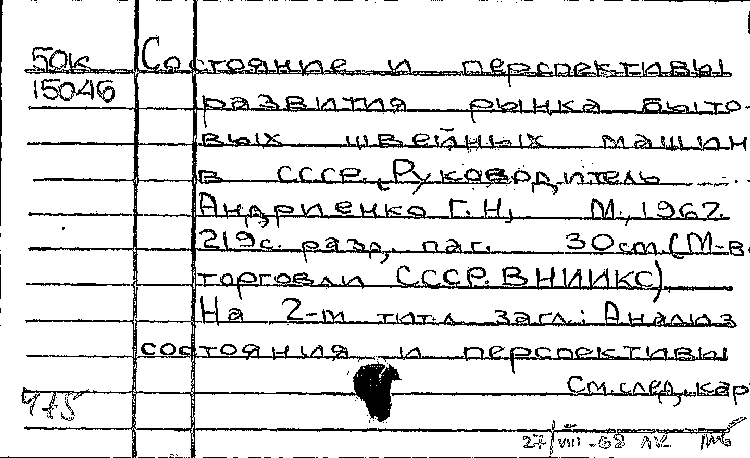 50к Состояние и перспективы
15046 развития рынка быто-
вых швейных машин
в СССР. Руководитель
Андриенко Г.Н, М., 1967.
219с. разд, паг. 30см. (М-во
торговли СССР. ВНИИКС)
На 2-м тит.л загл.: Анализ
состояния и перспективы
См.след.кар
475
27/VIII-68